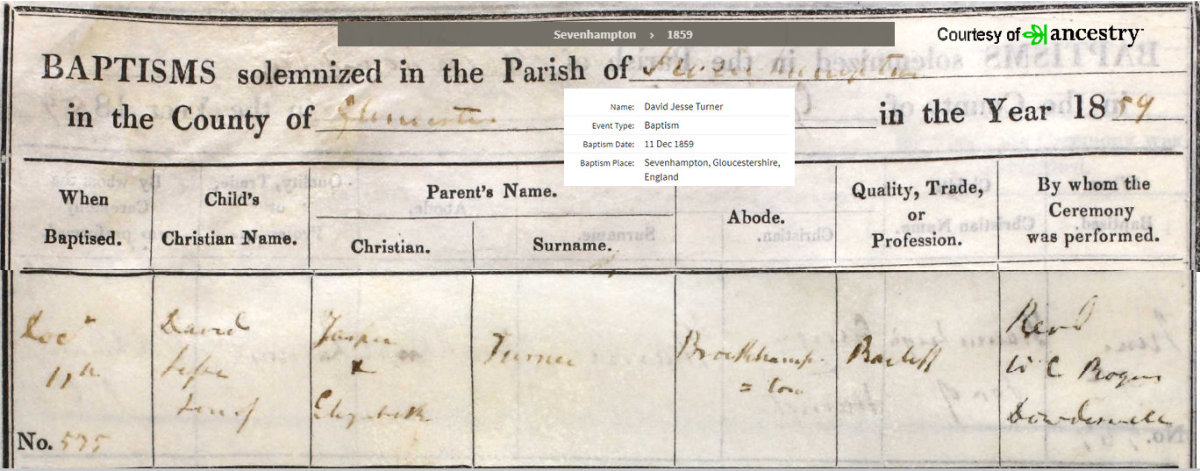 Sevenhampton › 1859
Courtesy of ancestry
BAPTISMS solemnized in the Parish of Sevenhampton
in the County of Gloucester in the Year 1859
Name: David Jesse Turner
Event Type: Baptism
Baptism Date: 11 Dec 1859
Baptism Place: Sevenhampton, Gloucestershire,
England
When
Baptised.
Child's
Christian Name.
Parent's Name.
Christian.
Surname.
Abode.
Quality, Trade,
or
Profession.
By whom the
Ceremony
was performed.
Decr
11th
No. 575
David
Jesse
Jasper
&
Elizabeth
Turner
Brockhamp
= ton
Bailiff
Revd
W C Rogers
Dowdeswell